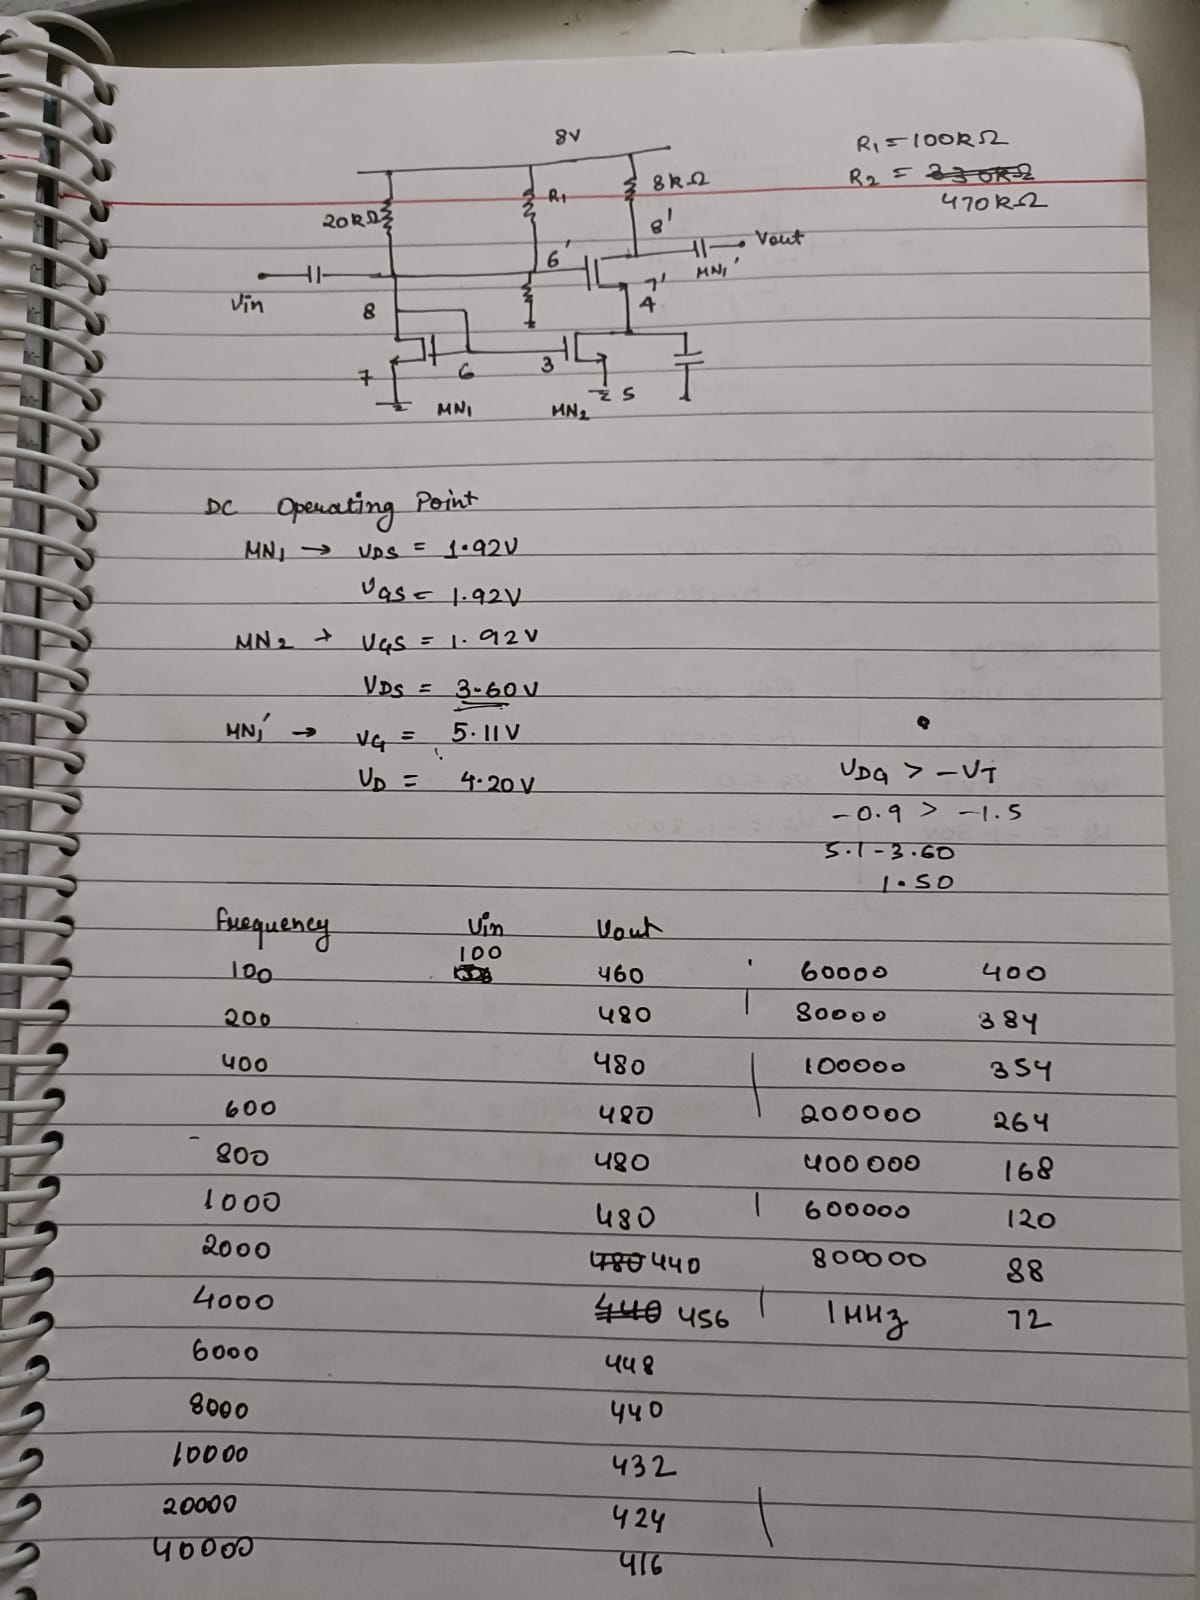 8V
R1 = 100kΩ
R2 = 330kΩ
470kΩ
20kΩ
R1
8kΩ
8'
Vout
6'
MN1'
7'
Vin
8
4
7
6
3
5
MN1
MN2
DC Operating Point
MN1 → VDS = 1.92V
VGS = 1.92V
MN2 → VGS = 1.92V
VDS = 3.60V
MN1' → VG = 5.11V
VD = 4.20V
VDG > -VT
-0.9 > -1.5
5.1 - 3.60
1.50
Frequency Vin Vout
100
100 460 60000 400
200 480 80000 384
400 480 100000 354
600 480 200000 264
800 480 400000 168
1000 480 600000 120
2000 480 440 800000 88
4000 440 456 1MHz 72
6000 448
8000 440
10000 432
20000 424
40000 416